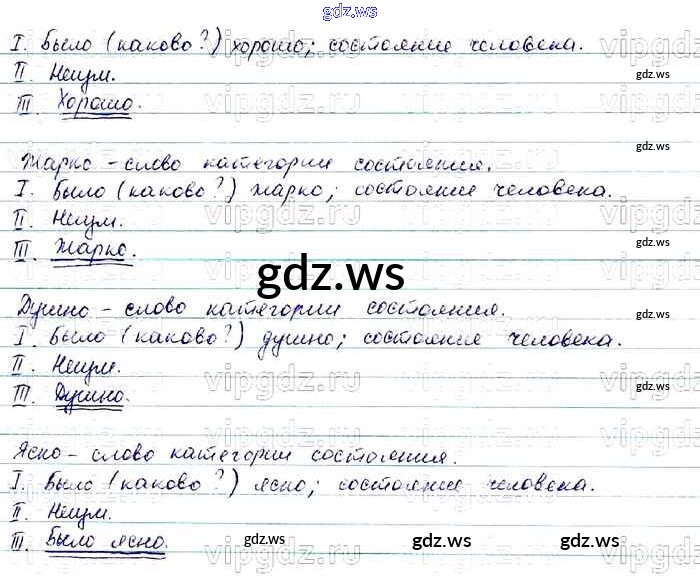 gdz.ws
I. Было (каково?) хорошо; состояние человека.
II. Неизм.
gdz.ws
III. Хорошо.
vipgdz.ru
gdz.ws
Жарко – слово категории состояния.
I. Было (каково?) жарко; состояние человека.
II. Неизм.
vipgdz.ru
gdz.ws
III. Жарко.
gdz.ws
Душно – слово категории состояния.
gdz.ws
I. Было (каково?) душно; состояние человека.
II. Неизм.
vipgdz.ru
gdz.ws
III. Душно.
Ясно – слово категории состояния.
gdz.ws
I. Было (каково?) ясно; состояние человека.
II. Неизм.
III. Было ясно.
gdz.ws gdz.ws gdz.ws
vipgdz.ru